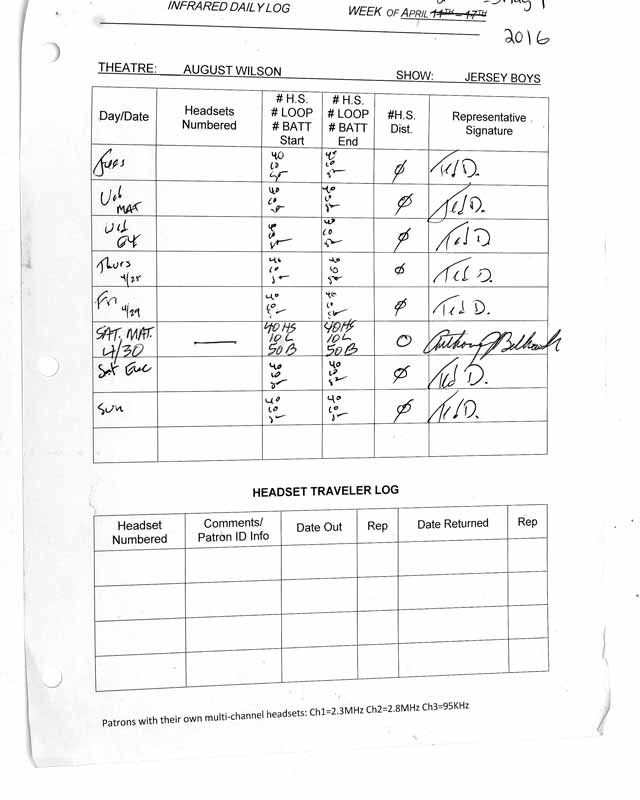 INFRARED DAILY LOG WEEK OF APRIL 11TH - 17TH May 1
2016
THEATRE: AUGUST WILSON SHOW: JERSEY BOYS
Day/Date Headsets Numbered # H.S. # LOOP # BATT Start # H.S. # LOOP # BATT End #H.S. Dist. Representative Signature
Tues 40 40 Ø Ted D.
Wed MAT 40 40 Ø Ted D.
Wed Ø Ted D
Thurs 4/28 40 Ø Ted D.
Fri 4/29 40 40 Ø Ted D.
SAT. MAT. 4/30 — 40 HS 10 L 50 B 40 HS 10 L 50 B O Anthony
Sat Eve 40 40 Ø Ted D.
Sun 40 40 Ø Ted D.
HEADSET TRAVELER LOG
Headset Numbered Comments/ Patron ID Info Date Out Rep Date Returned Rep
Patrons with their own multi-channel headsets: Ch1=2.3MHz Ch2=2.8MHz Ch3=95KHz